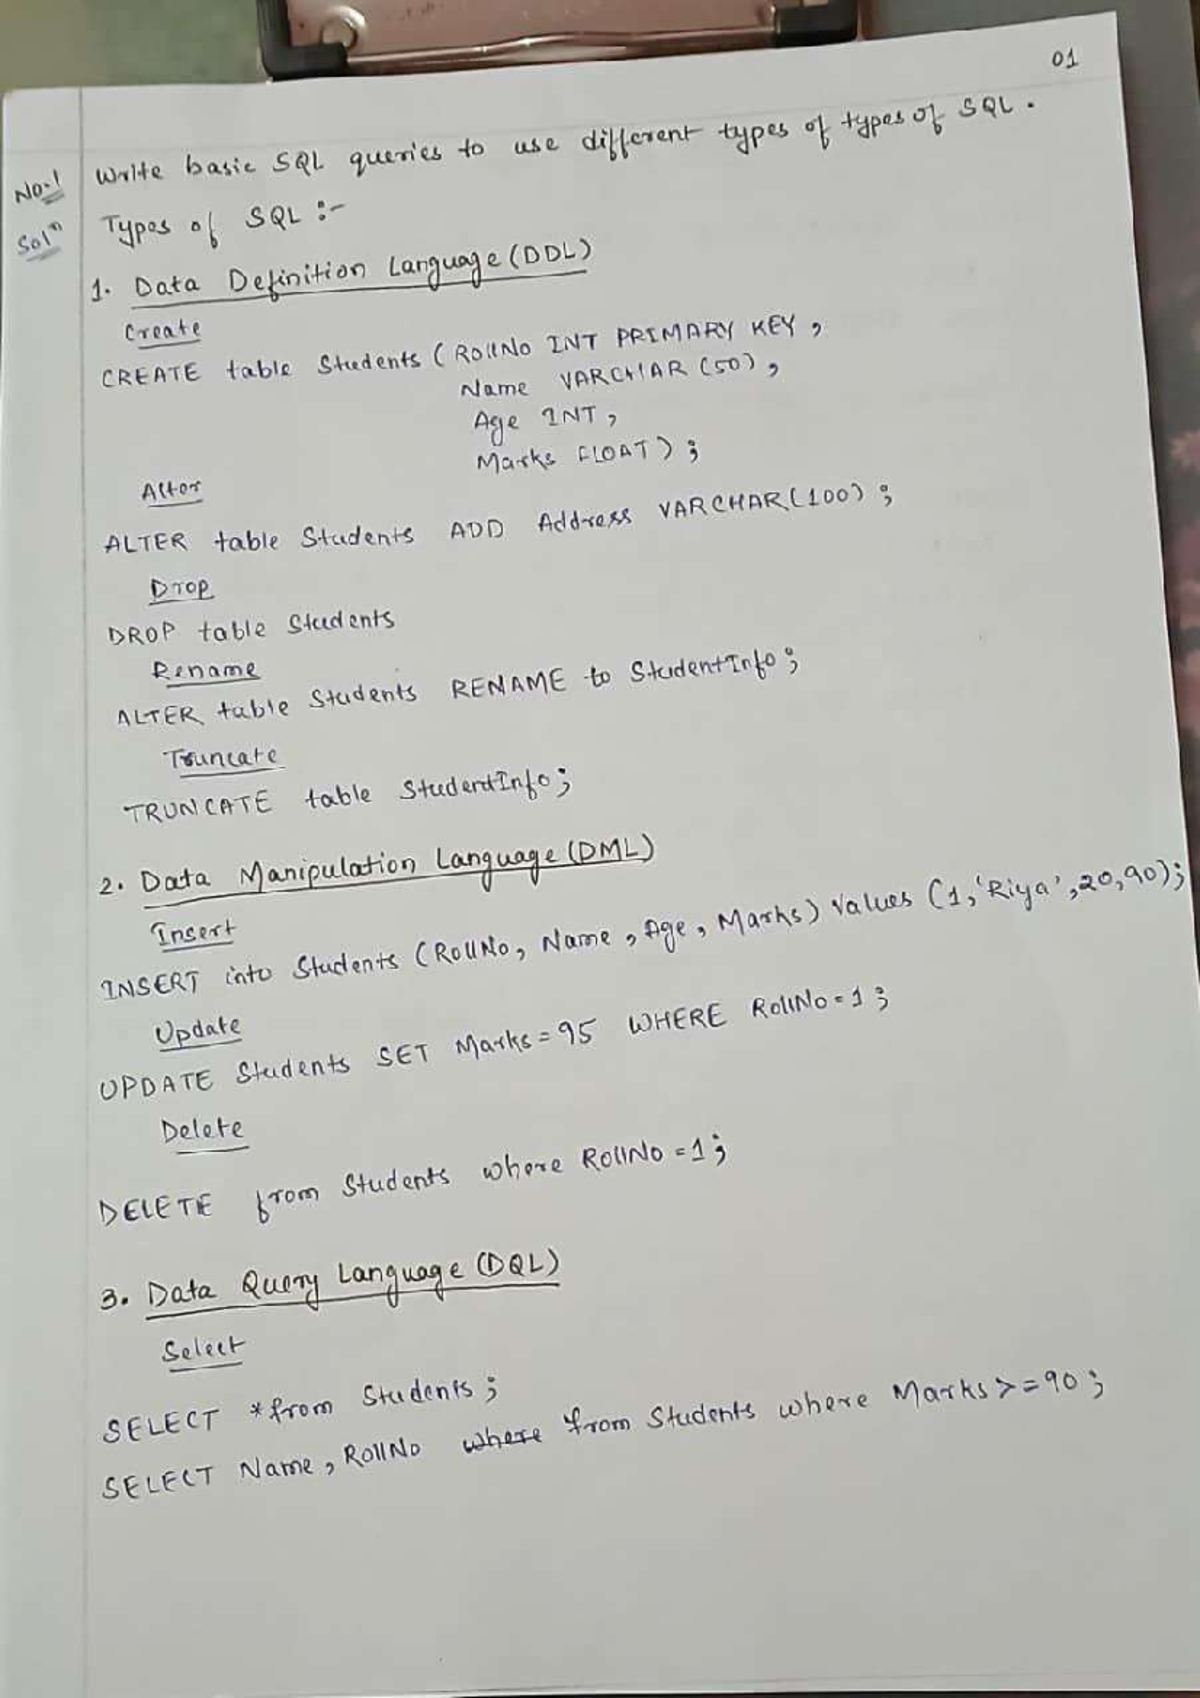 01
No-1 Write basic SQL queries to use different types of types of SQL.
Solⁿ Types of SQL :-
1. Data Definition Language (DDL)
Create
CREATE table Students (RollNo INT PRIMARY KEY,
Name VARCHAR (50),
Age INT,
Marks FLOAT);
Alter
ALTER table Students ADD Address VARCHAR(100);
Drop
DROP table Students
Rename
ALTER table Students RENAME to StudentInfo;
Truncate
TRUNCATE table StudentInfo;
2. Data Manipulation Language (DML)
Insert
INSERT into Students (RollNo, Name, Age, Marks) Values (1,'Riya',20,90);
Update
UPDATE Students SET Marks=95 WHERE RollNo=1;
Delete
DELETE from Students where RollNo=1;
3. Data Query Language (DQL)
Select
SELECT *from Students;
SELECT Name, RollNo where from Students where Marks>=90;